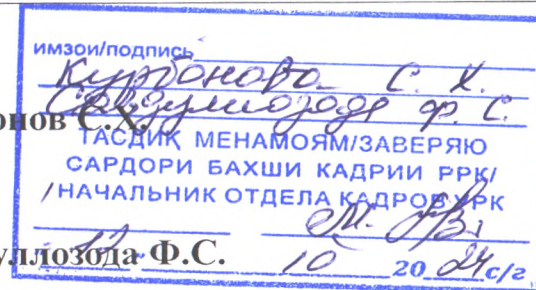 имзои/подпись
Курбонова С. Х.
Саъдуллозода Ф. С.
онов С.Х.
ТАСДИҚ МЕНАМОЯМ/ЗАВЕРЯЮ
САРДОРИ БАХШИ КАДРИИ РРК/
НАЧАЛЬНИК ОТДЕЛА КАДРОВ УРК
уллозода Ф.С.
12 10 2024 с/г